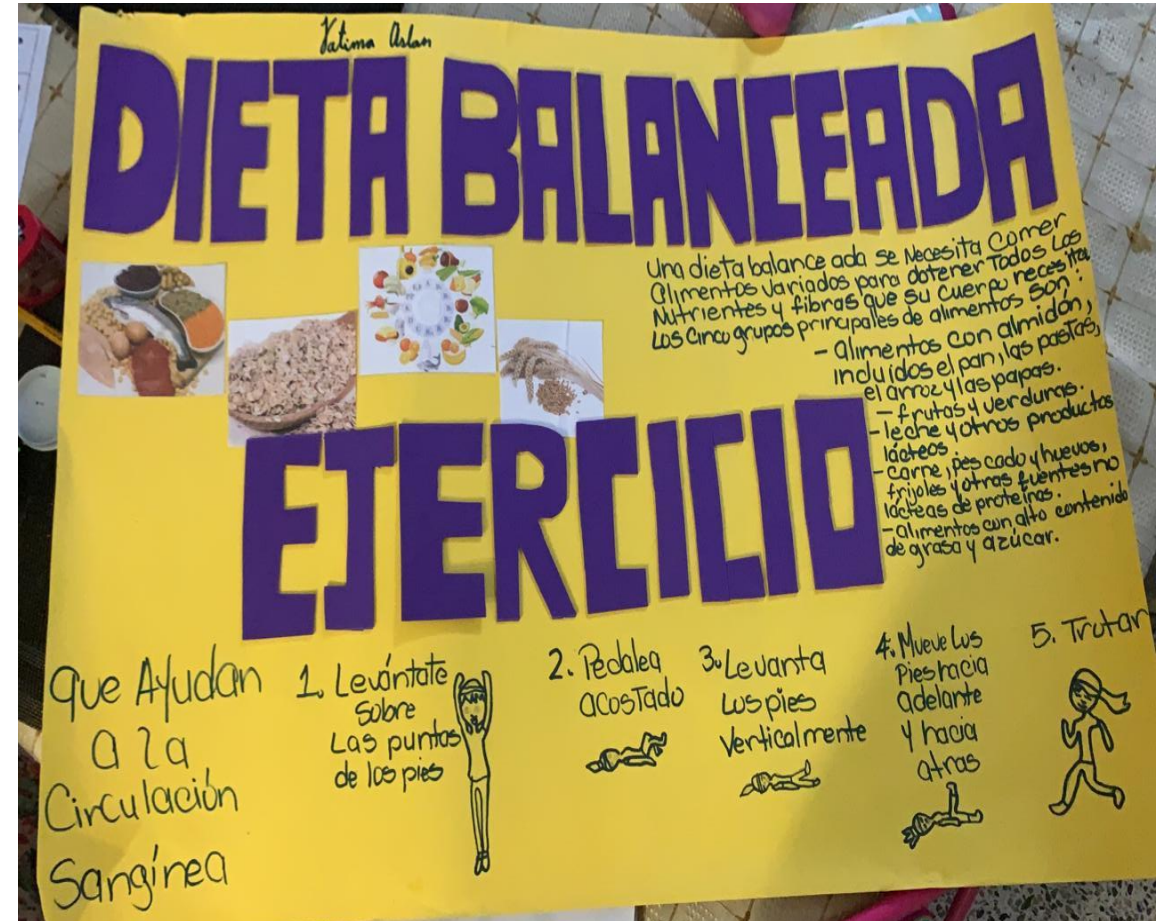 Fatima Aslan
DIETA BALANCEADA
Una dieta balance ada se Necesita Comer
Alimentos variados para obtener Todos Los
Nutrientes y fibras que su cuerpo necesita
Los Cinco grupos principales de alimentos son:
- alimentos con almidón,
incluídos el pan, las pastas,
el arroz y las papas.
- frutas y verduras.
- leche y otros productos
lácteos.
- carne, pescado y huevos,
frijoles y otras fuentes no
lácteas de proteínas.
- alimentos con alto contenido
de grasa y azúcar.
EJERCICIO
que Ayudan
a la
Circulación
Sangínea
1. Levántate
sobre
Las puntas
de los pies
2. Pedalea
acostado
3. Levanta
Los pies
Verticalmente
4. Mueve Los
Pies hacia
adelante
y hacia
atras
5. Trotar